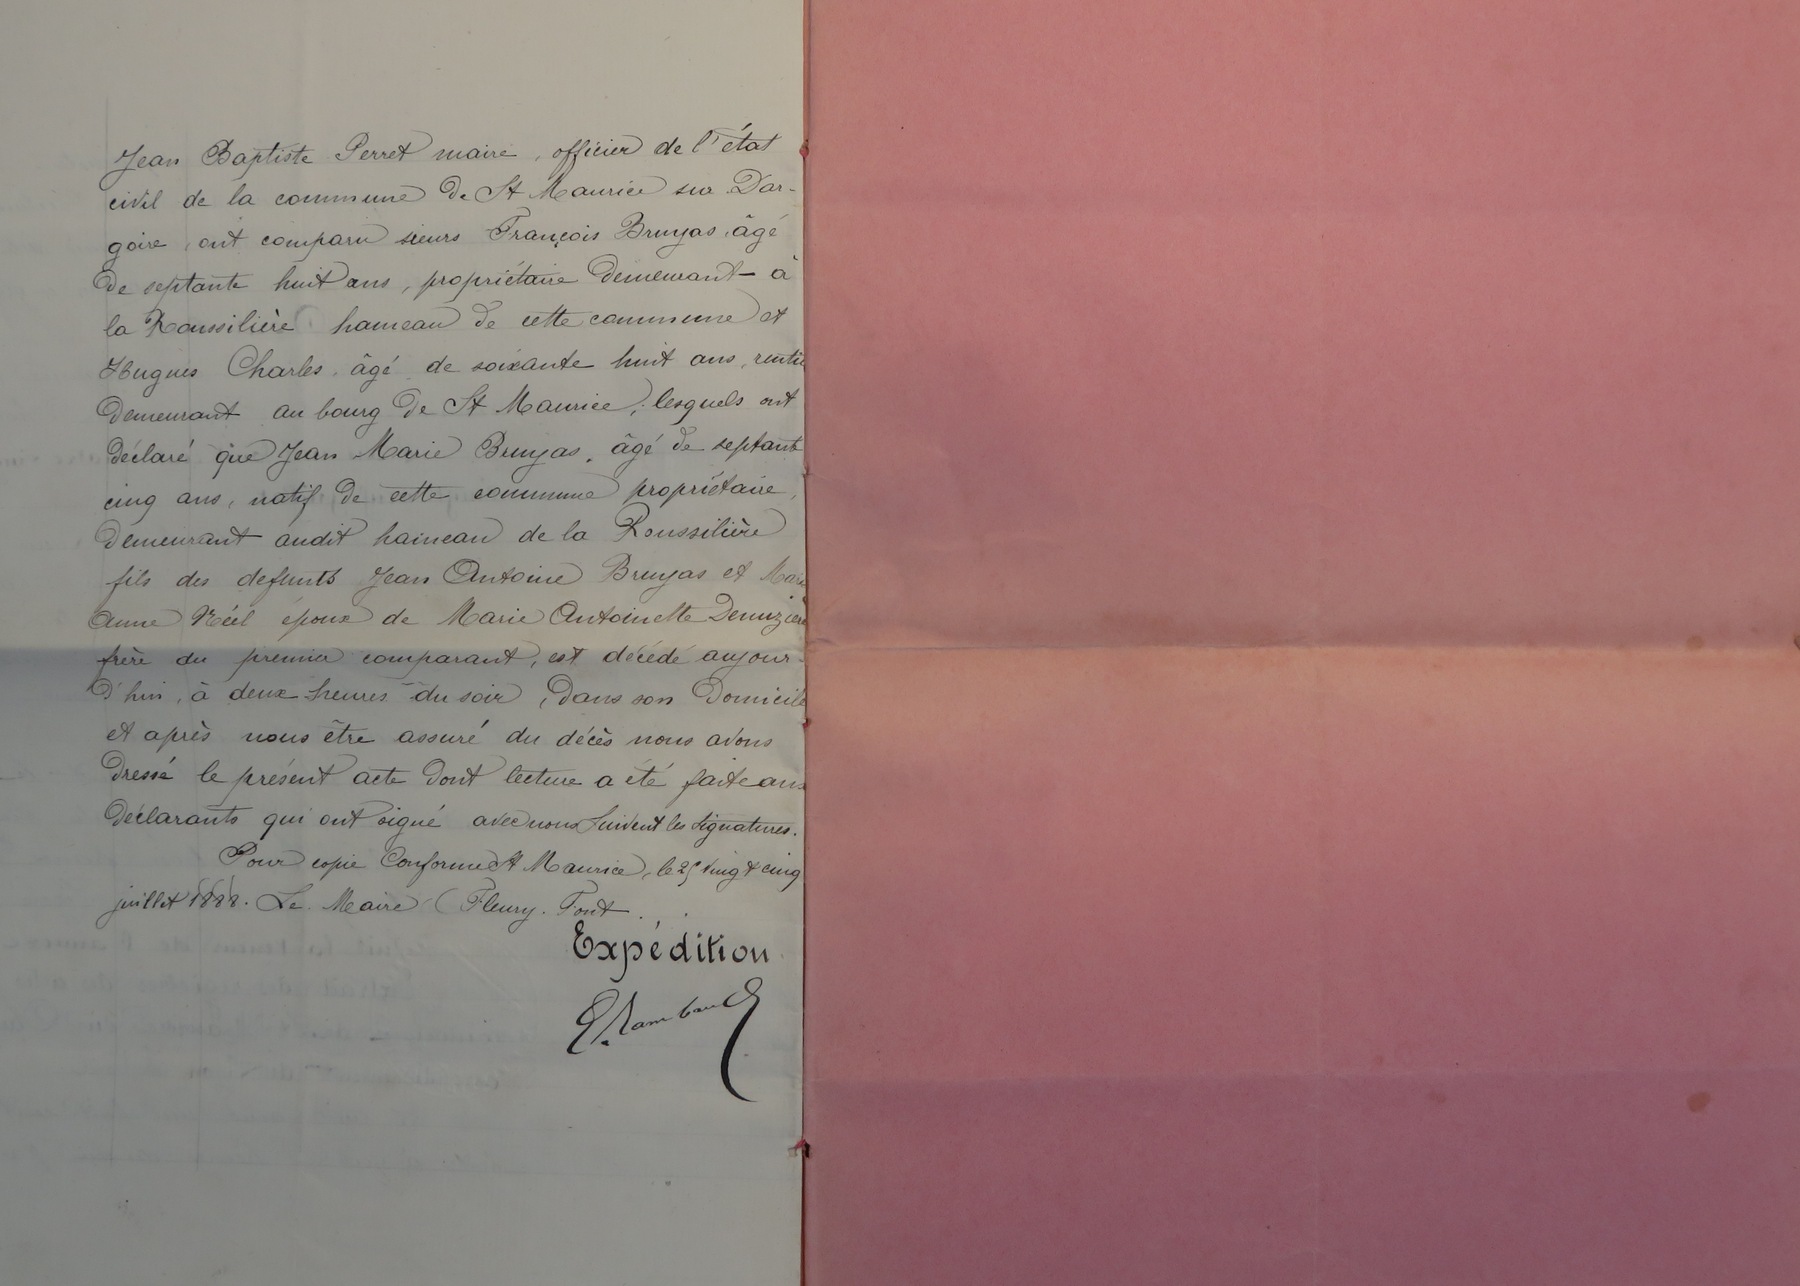 Jean Baptiste Perret maire, officier de l'état
civil de la commune de St Maurice sur Dar-
goire, ont comparu sieurs François Bruyas, âgé
de septante huit ans, propriétaire demeurant à
la Roussilière hameau de cette commune et
Hugues Charles, âgé de soixante huit ans, rentier
demeurant au bourg de St Maurice, lesquels ont
déclaré que Jean Marie Bruyas, âgé de septante
cinq ans, natif de cette commune propriétaire,
demeurant audit hameau de la Roussilière
fils des defunts Jean Antoine Bruyas et Marie
Anne époux de Marie Antoinette Demizière
frère du premier comparant, est décédé aujour-
d'hui, à deux heures du soir, dans son domicile
et après nous être assuré du décès nous avons
dressé le présent acte dont lecture a été faite aux
déclarants qui ont signé avec nous suivent les signatures.
Pour copie conforme St Maurice, le 25 vingt cinq
juillet 1888. Le Maire (Fleury. Font.
Expédition
Rambaud